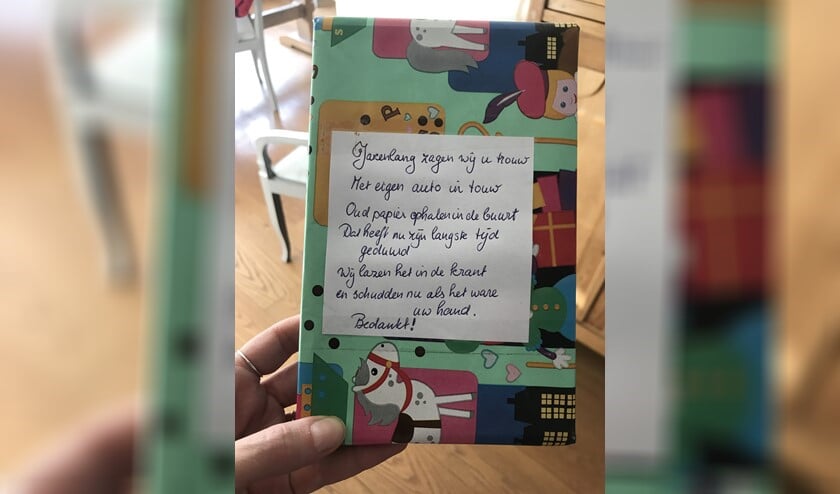 Jarenlang zagen wij u trouw
Met eigen auto in touw
Oud papier ophalen in de buurt
Dat heeft nu zijn langste tijd
geduurd
Wij lazen het in de krant
en schudden nu als het ware
uw hand.
Bedankt!